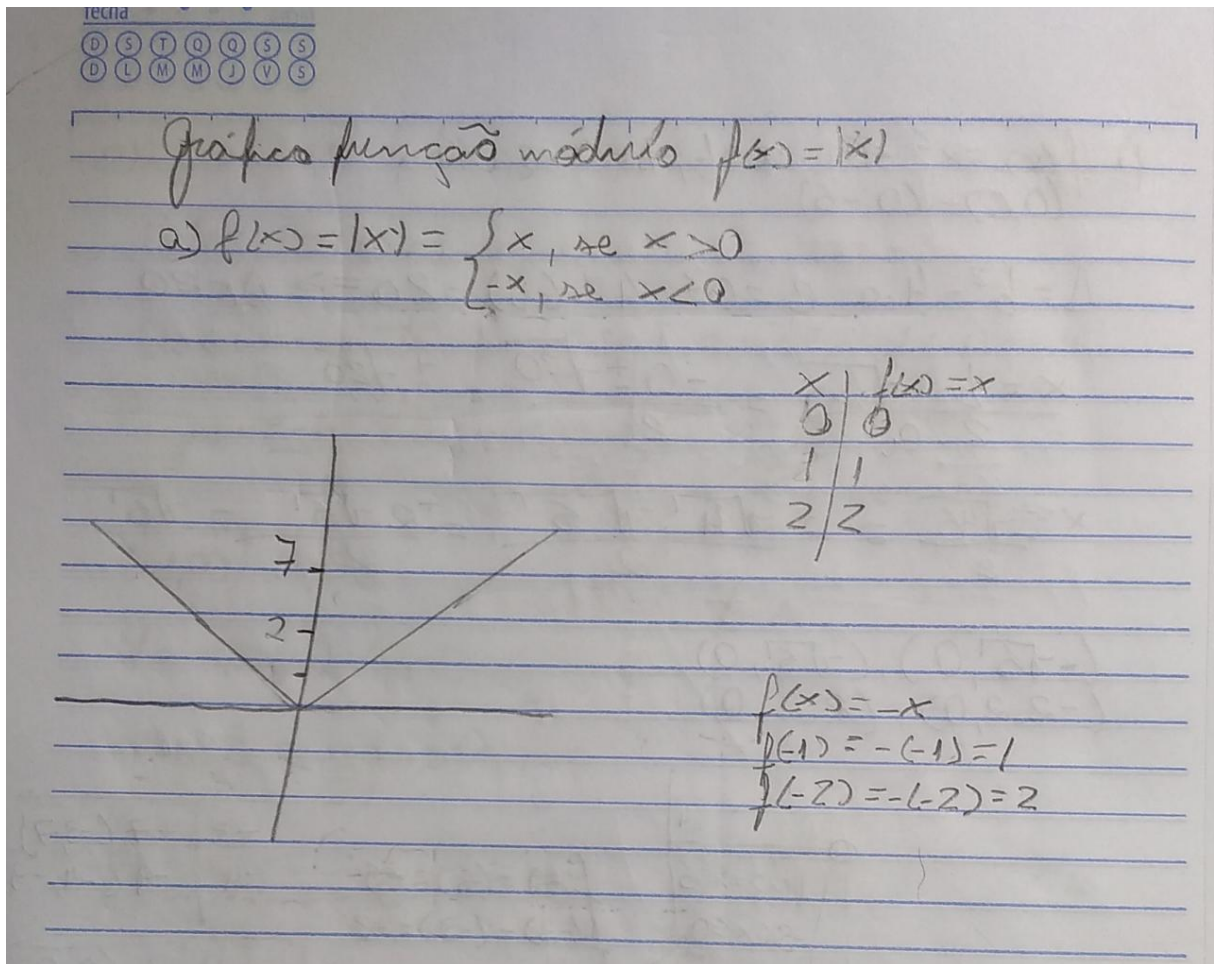 fecha
D S T Q Q S S
D L M M J V S
Gráfico função módulo f(x) = |x|
a) f(x) = |x| = { x, se x > 0
{ -x, se x < 0
x | f(x) = x
0 | 0
1 | 1
2 | 2
7
2
f(x) = -x
f(-1) = -(-1) = 1
f(-2) = -(-2) = 2